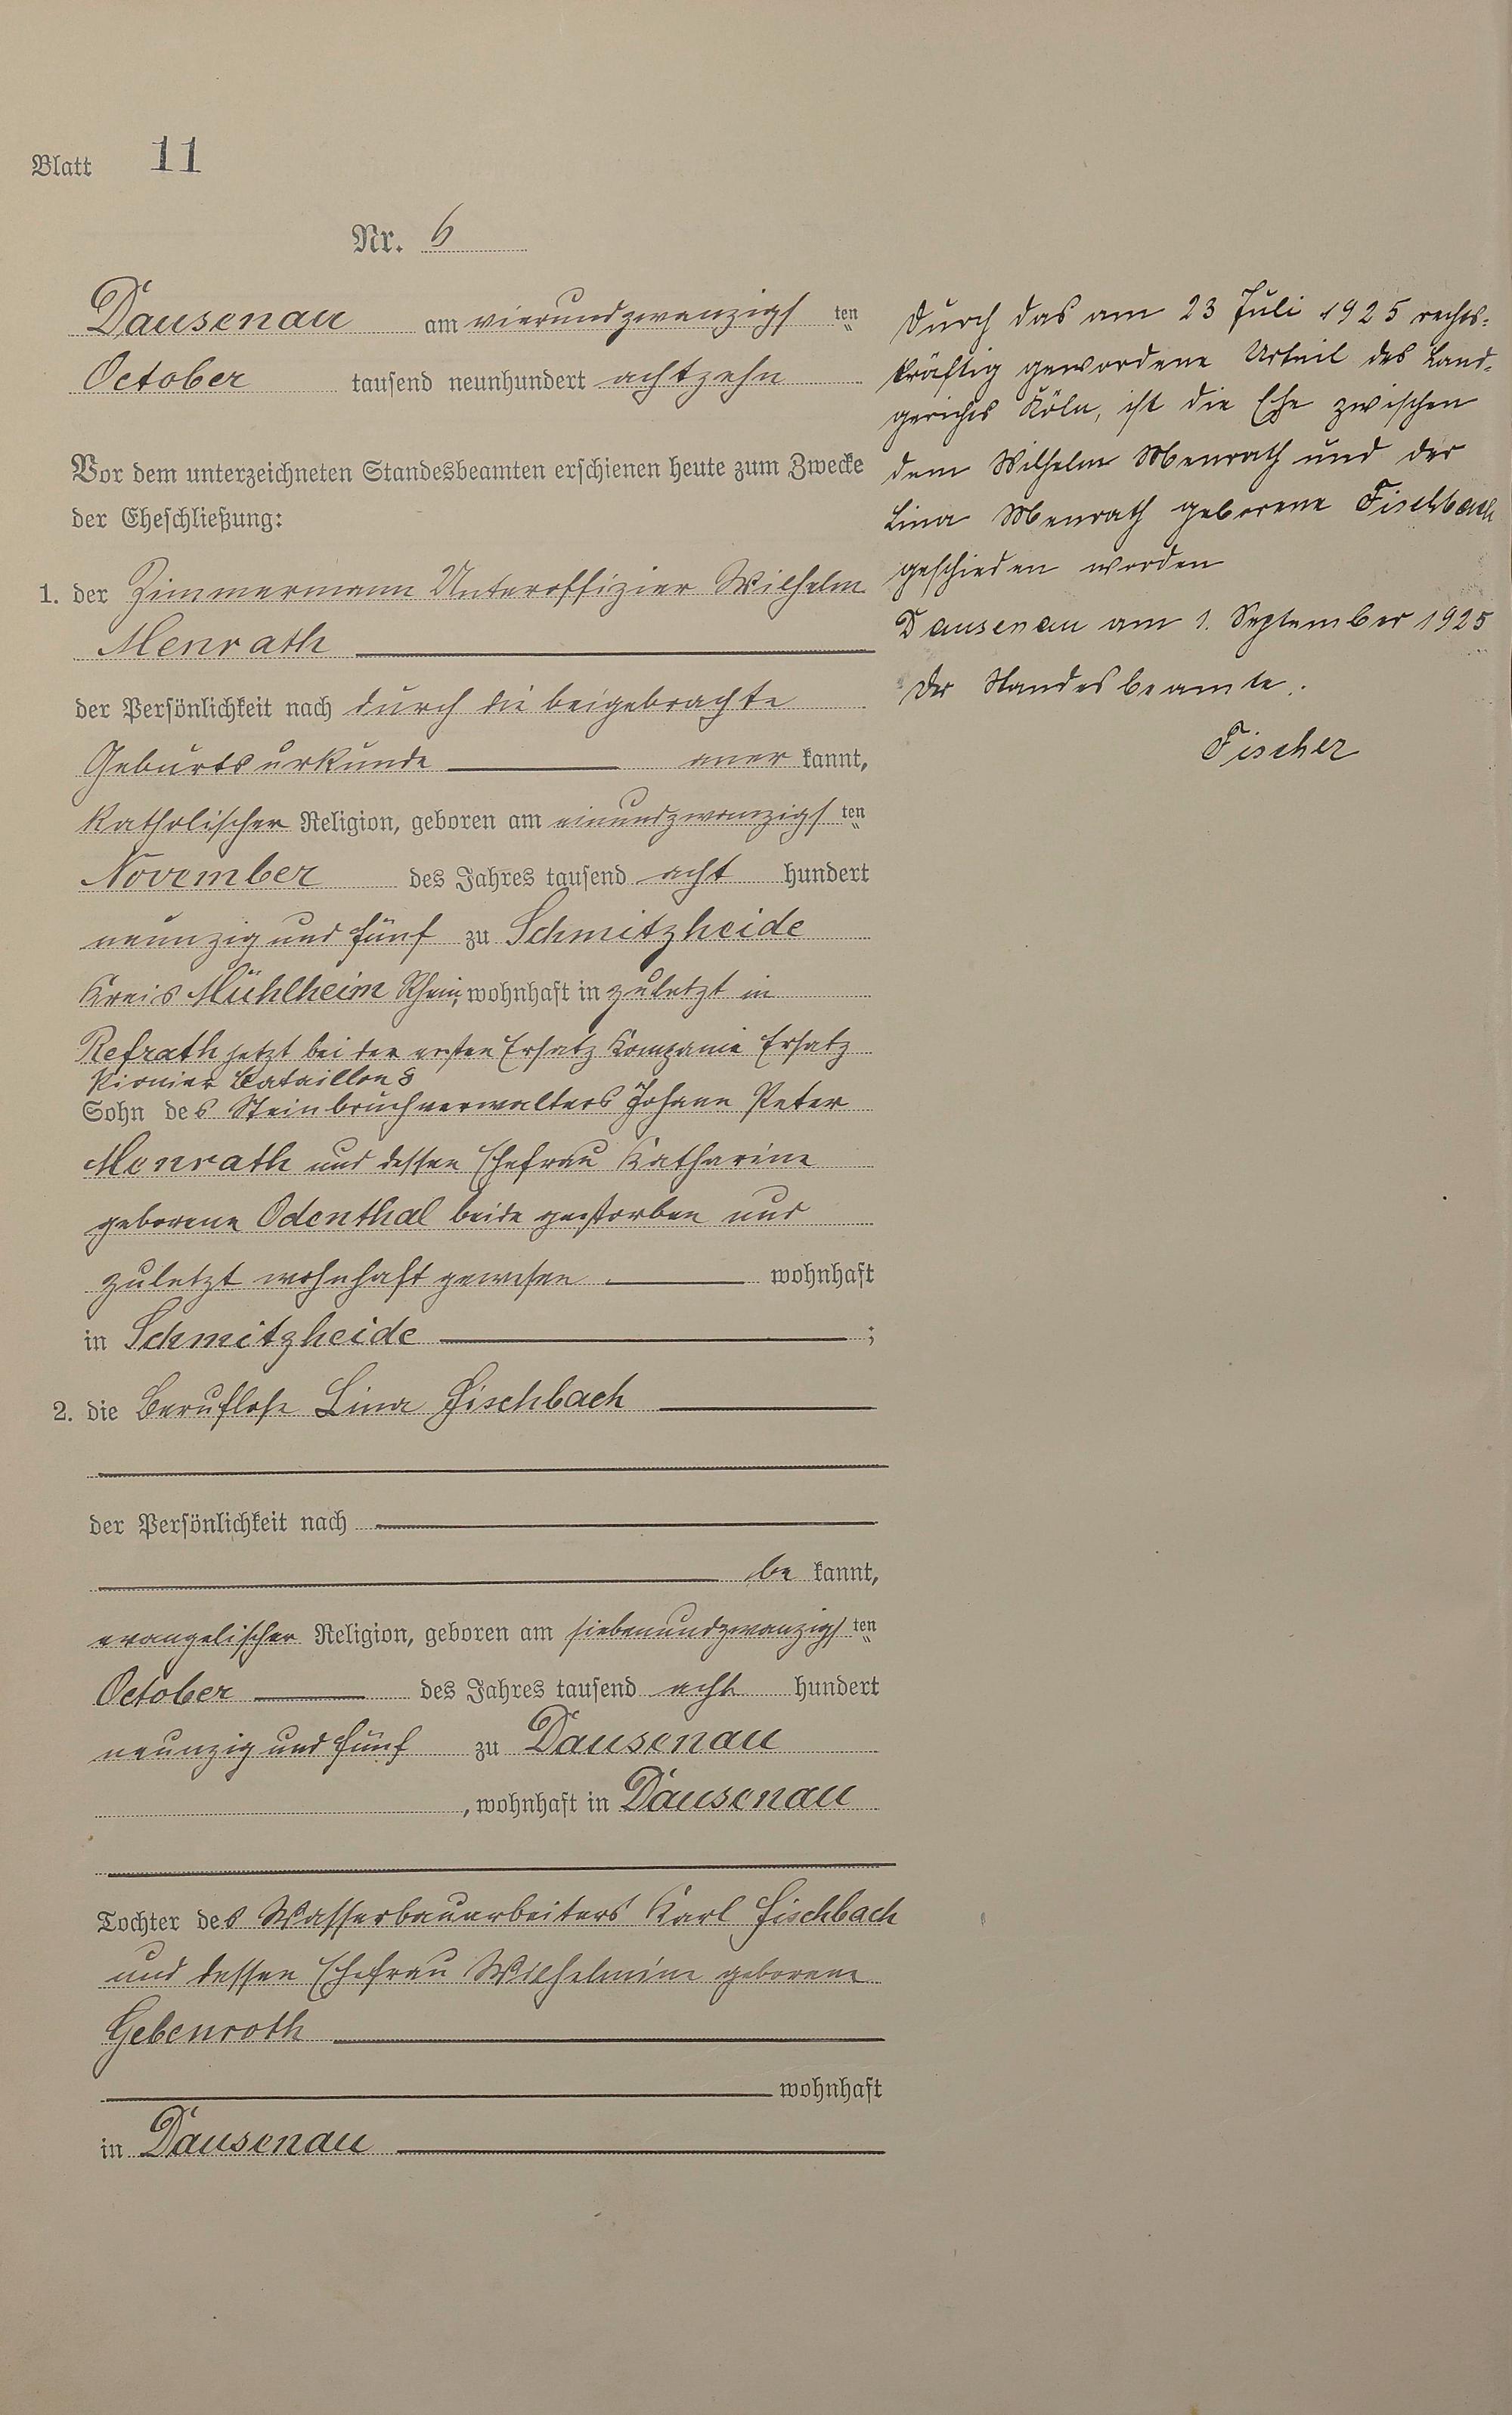 Blatt 11
Nr. 6
Dausenau am vierundzwanzigsten
October tausend neunhundert achtzehn
Vor dem unterzeichneten Standesbeamten erschienen heute zum Zwecke
der Eheschließung:
1. der Zimmermann Unteroffizier Wilhelm
Menrath
der Persönlichkeit nach durch die beigebrachte
Geburtsurkunde anerkannt,
katholischer Religion, geboren am einundzwanzigsten
November des Jahres tausend acht hundert
neunzig und fünf zu Schmitzheide
Kreis Mühlheim Rhein, wohnhaft in zuletzt in
Refrath jetzt bei der ersten Ersatz Kompanie Ersatz
Pionier Bataillon 8
Sohn des Steinbruchverwalters Johann Peter
Menrath und dessen Ehefrau Katharine
geborene Odenthal beide gestorben und
zuletzt wohnhaft gewesen wohnhaft
in Schmitzheide ;
2. die Beruflose Lina Fischbach
der Persönlichkeit nach
be kannt,
evangelischer Religion, geboren am siebenundzwanzigsten
October des Jahres tausend acht hundert
neunzig und fünf zu Dausenau
, wohnhaft in Dausenau
Tochter des Wasserbauarbeiters Karl Fischbach
und dessen Ehefrau Wilhelmine geborene
Gebenroth
wohnhaft
in Dausenau
Durch das am 23 Juli 1925 rechts-
kräftig gewordene Urteil des Land-
gerichts Köln, ist die Ehe zwischen
dem Wilhelm Menrath und der
Lina Menrath geborene Fischbach
geschieden worden
Dausenau am 1. September 1925
Der Standesbeamte.
Fischer